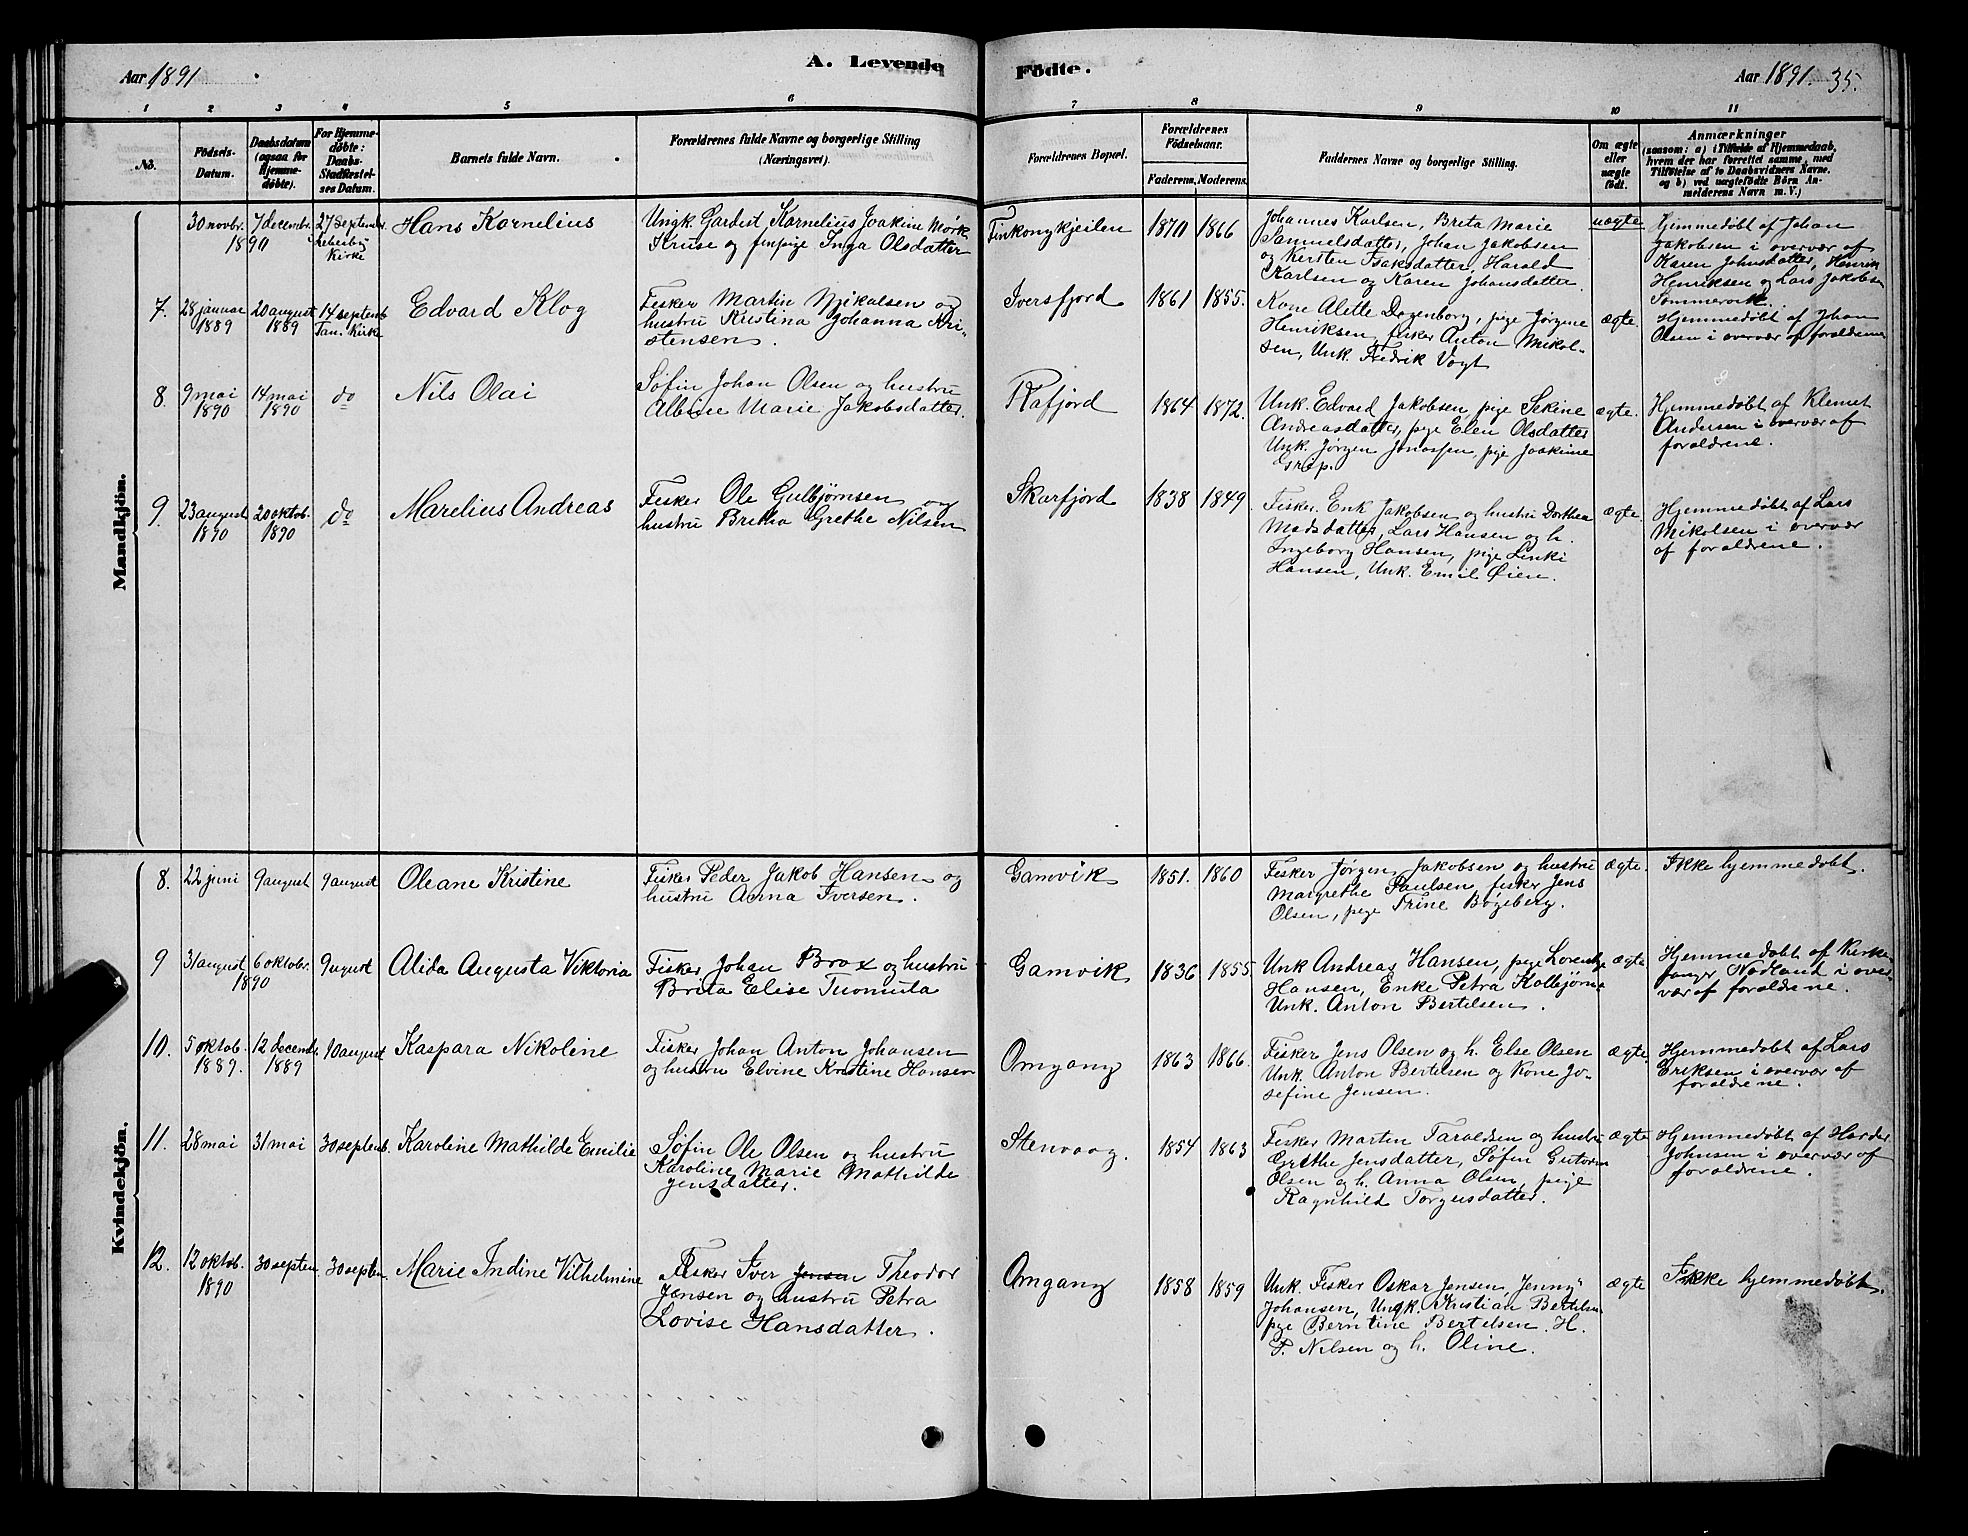 Aar 1891
A. Levende
Födte.
Aar 1891. 35.
1 2 3 4 5 6 7 8 9 10 11
No. Födsels-Datum. Daabsdatum (ogsaa for Hjemmedöbte). For Hjemmedöbte: Daabs-Stadfæstelses Datum. Barnets fulde Navn. Forældrenes fulde Navne og borgerlige Stilling (Næringsvei). Forældrenes Bopæl. Forældrenes Födselsaar. Faderens. Moderens. Faddernes Navne og borgerlige Stilling. Om ægte eller uægte födt. Anmærkninger (saasom: a) i Tilfælde af Hjemmedaab, hvem der har forrettet samme, med Tilföielse af to Daabsvidners Navne, og b) ved uægtefödte Börn Anmelderens Navn m. V.)
Mandkjön.
30 novbr. 1890
7 decembr.
27 septembr. Lebesby Kirke
Hans Kornelius
Ungk. Gardist Kornelius Joakim Mørk
Kruse og finpige Inga Olsdatter
Finkongkjeilen
1870 1866
Johannes Karlsen, Breta Marie
Samuelsdatter, Johan Jakobsen
og Kersten Isaksdatter, Harald
Karlsen og Karen Johansdatter.
uægte
Hjemmedøbt af Johan
Jakobsen i overvær af
Karen Johnsdatter, Henrik
Henriksen og Lars Jakobsen
Sommervik.
7. 28 januar 1889
20 august 1889
14 septemb. Tan. Kirke
Edvard Klog
Fisker Martin Nikolsen og
hustru Kristina Johanna Kri-
stensen.
Iversfjord
1861 1855.
Kone Alette Dagenborg, pige Jørgine
Henriksen, fisker Anton Mikol-
sen, Unk. Fredrik Vogt
ægte.
Hjemmedøbt af Johan
Olsen i overvær af foraldrene
8. 9 mai 1890
14 mai 1890
do
Nils Olai
Søfin Johan Olsen og hustru
Albine Marie Jakobsdatter.
Rafjord
1864 1872.
Unk. Edvard Jakobsen, pige Sekine
Andreasdatter, pige Elen Olsdatter
Ungk. Jørgen Jonassen, pige Joakime
ægte.
Hjemmedøbt af Klemet
Andersen i overvær af
foraldrene.
9. 23 august 1890
20 oktob. 1890
do
Marelius Andreas
Fisker Ole Gulbjørnsen og
hustru Bretha Grethe Nilsen
Skarfjord
1838 1849.
Fisker Erik Jakobsen og hustru Dorthea
Madsdatter, Lars Hansen og h.
Ingeborg Hansen, pige Linki
Hansen, Unk. Emil Øien.
ægte.
Hjemmedøbt af Lars
Mikolsen i overvær
af foraldrene.
Kvindekjön.
8. 22 juni
9 august
9 august
Oleane Kristine
Fisker Peder Jakob Hansen og
hustru Anna Iversen.
Gamvik
1851. 1860
Fisker Jørgen Jakobsen og hustru
Margrethe Paulsen, fisker Jens
Olsen, pige Trine Bøgeberg.
ægte.
Ikke hjemmedøbt.
9 31 august 1890
6 oktobr.
9 ugust
Alida Augusta Viktoria
Fisker Johan Brox og hustru
Breta Elise Tuomula
Gamvik
1836 1855
Unk Andreas Hansen, pige
Hansen, Enke Petra Kolbjørns
Unk. Anton Bertelsen.
ægte
Hjemmedøbt af Kirke-
sanger Nodland i over
vær af foraldrene.
10. 5 oktob. 1889.
12 decembr. 1889
10 august
Kaspara Nikoline
Fisker Johan Anton Johansen
og hustru Elvine Kristine Hansen
Omgang
1863 1866.
Fisker Jens Olsen og h. Else Olsen
Unk. Anton Bertelsen og Kone Jo-
sefine Jensen.
ægte.
Hjemmedøbt af Lars
Eriksen i overvær af
foraldrene.
11. 28 mai
31 mai
30 septemb.
Karoline Mathilde Emilie
Søfin Ole Olsen og hustru
Karoline Marie Mathilde
Jensdatter.
Stenvaag.
1854 1863
Fisker Martin Taraldsen og hustru
Grethe Jensdatter, Søfin Gutorm
Olsen og h. Anna Olsen, pige
Ragnhild Torgersdatter.
ægte
Hjemmedøbt af Harder
Johnsen i overvær af
foraldrene.
12. 12 oktob. 1890
30 septem.
30 septem.
Marie Indine Vilhelmine
Fisker Iver Jensen Theodor
Jensen og hustru Petra
Lovise Hansdatter.
Omgang
1858 1859
Unk. Fisker Oskar Jensen, Jenny
Johansen, Ungk. Kristian Bertelsen
pige Berntine Bertelsen. H.
P. Nilsen og h. Oline.
ægte
Ikke hjemmedøbt.